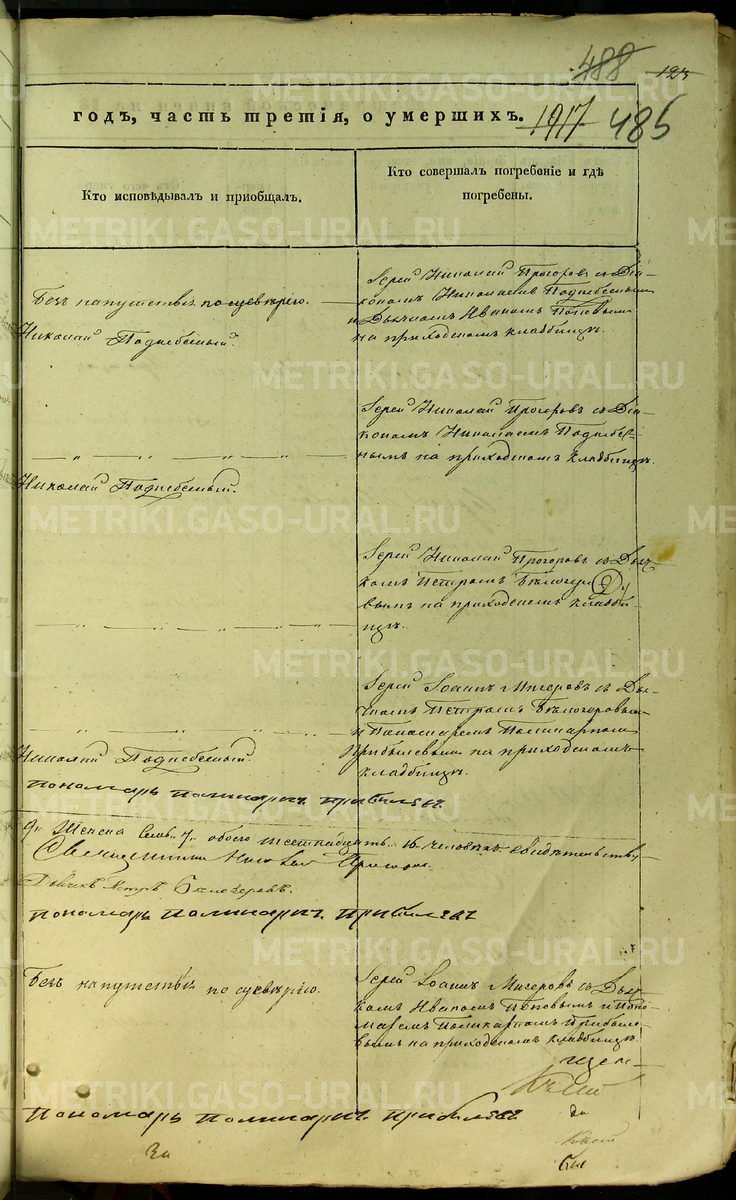 488
123
годъ, часть третія, о умершихъ.
1917
485
Кто исповѣдывалъ и приобщалъ.
Кто совершалъ погребеніе и гдѣ
погребены.
Безъ напутствія по суевѣрію.
Николай Поднебесный.
Іерей Николай Прогоровъ съ Діа-
кономъ Николаемъ Поднебеснымъ
и Дьячкомъ Иваномъ Поповымъ
на приходскомъ кладбищѣ.
Іерей Николай Прогоровъ съ Діа-
кономъ Николаемъ Поднебес-
нымъ на приходскомъ кладбищѣ.
Николай Поднебесный.
Іерей Николай Прогоровъ съ Дьяч-
комъ Петромъ Бѣлогоро-
вымъ на приходскомъ кладби-
щѣ.
Іерей Іоаннъ съ Дья-
чкомъ Петромъ Бѣлогоровымъ
и Пономаремъ Поликарпомъ
Прибылевымъ на приходскомъ
кладбищѣ.
Николай Поднебесный.
пономарь Поликарпъ Прибылевъ
обоего шестнадцать 16 человѣкъ свидѣтельству-
Священникъ
Дьячекъ Петръ Бѣлогоровъ.
пономарь Поликарпъ Прибылевъ
Безъ напутствія по суевѣрію.
Іерей Іоаннъ съ Дьяч-
комъ Иваномъ Поповымъ и Поно-
маремъ Поликарпомъ Прибыле-
вымъ на приходскомъ кладбищѣ.
пономарь Поликарпъ Прибылевъ
METRIKI.GASO-URAL.RU